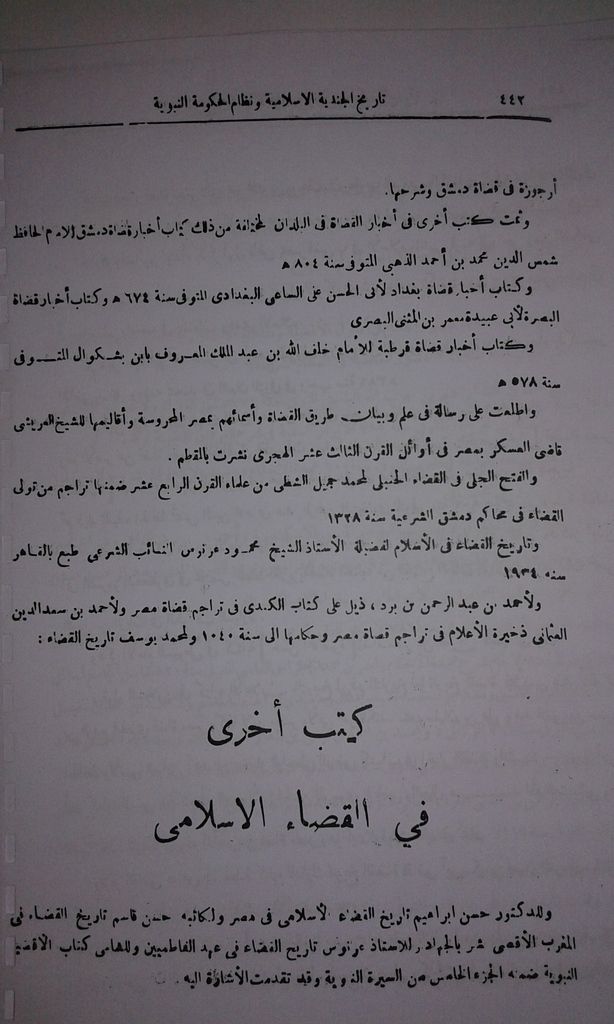 تاريخ الجندية الاسلامية ونظام الحكومة النبوية ٤٤٢
أرجوزة فى قضاة دمشق وشرحها.
وثمت كتب أخرى فى أخبار القضاة فى البلدان المختلفة من ذلك كتاب أخبار قضاة دمشق للامام الحافظ
شمس الدين محمد بن أحمد الذهبى المتوفى سنة ٨٠٤ ه
وكتاب أخبار قضاة بغداد لأبى الحسن على الساعى البغدادى المتوفى سنة ٦٧٤ ه وكتاب أخبار قضاة
البصرة لأبى عبيدة معمر بن المثنى البصرى
وكتاب أخبار قضاة قرطبة للأمام خلف الله بن عبد الملك المعروف بابن بشكوال المتوفى
سنة ٥٧٨ ه
واطلعت على رسالة فى علم وبيان طريق القضاة وأسمائهم بمصر المحروسة وأقاليمها للشيخ العريشى
قاضى العسكر بمصر فى أوائل القرن الثالث عشر الهجرى نشرت بالقطم .
والفتح الجلى فى القضاء الحنبلى لمحمد جميل الشطى من علماء القرن الرابع عشر ضمنها تراجم من تولى
القضاء فى محاكم دمشق الشرعية سنة ١٣٢٨
وتاريخ القضاء فى الأسلام لفضيلة الأستاذ الشيخ محمود عرنوس النائب الشرعى طبع بالقاهر
سنه ١٩٣٤
ولأحمد بن عبد الرحمن بن برد ، ذيل على كتاب الكندى فى تراجم قضاة مصر ولأحمد بن سعد الدين
العثمانى ذخيرة الأعلام فى تراجم قضاة مصر وحكامها الى سنة ١٠٤٠ ولمحمد يوسف تاريخ القضاء :
كتب أخرى
في القضاء الاسلامى
وللدكتور حسن ابراهيم تاريخ القضاء الأسلامى فى مصر ولكاتبه حسن قاسم تاريخ القضاء فى
المغرب الأقصى نشر بالجهاد وللاستاذ عرنوس تاريخ القضاء فى عهد الفاطميين وللشامى كتاب الأقضية
النبوية ضمنه الجزء الخامس من السيرة النبوية وقد تقدمت الأشارة اليه .